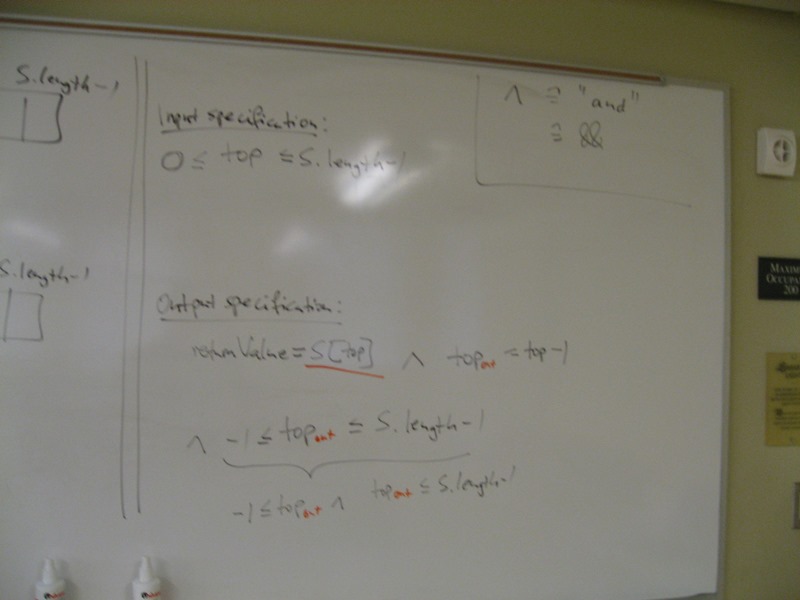 S.length-1
Input specification:
0 ≤ top ≤ S.length-1
∧ ≅ "and"
≅ &&
S.length-1
Output specification:
returnValue = S[top] ∧ top_out = top-1
∧ -1 ≤ top_out ≤ S.length-1
-1 ≤ top_out ∧ top_out ≤ S.length-1
MAXIM
OCCUPA
200